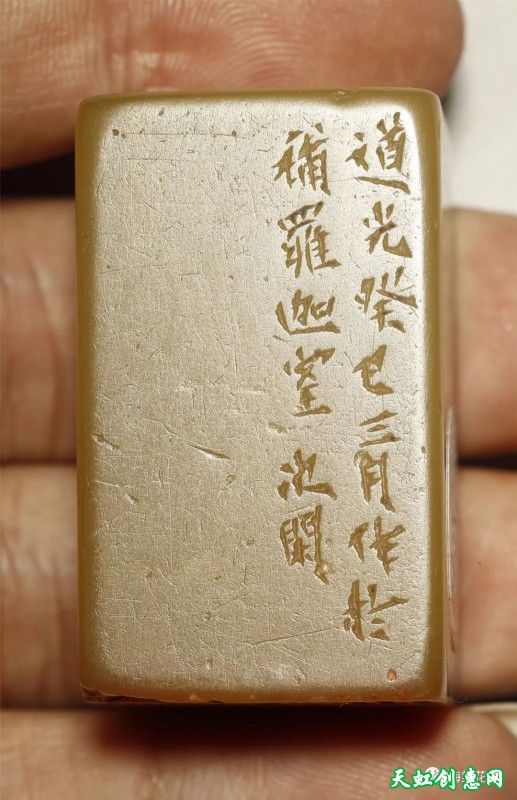 道光癸巳三月作於
補羅迦室 次閑
天虹创意网